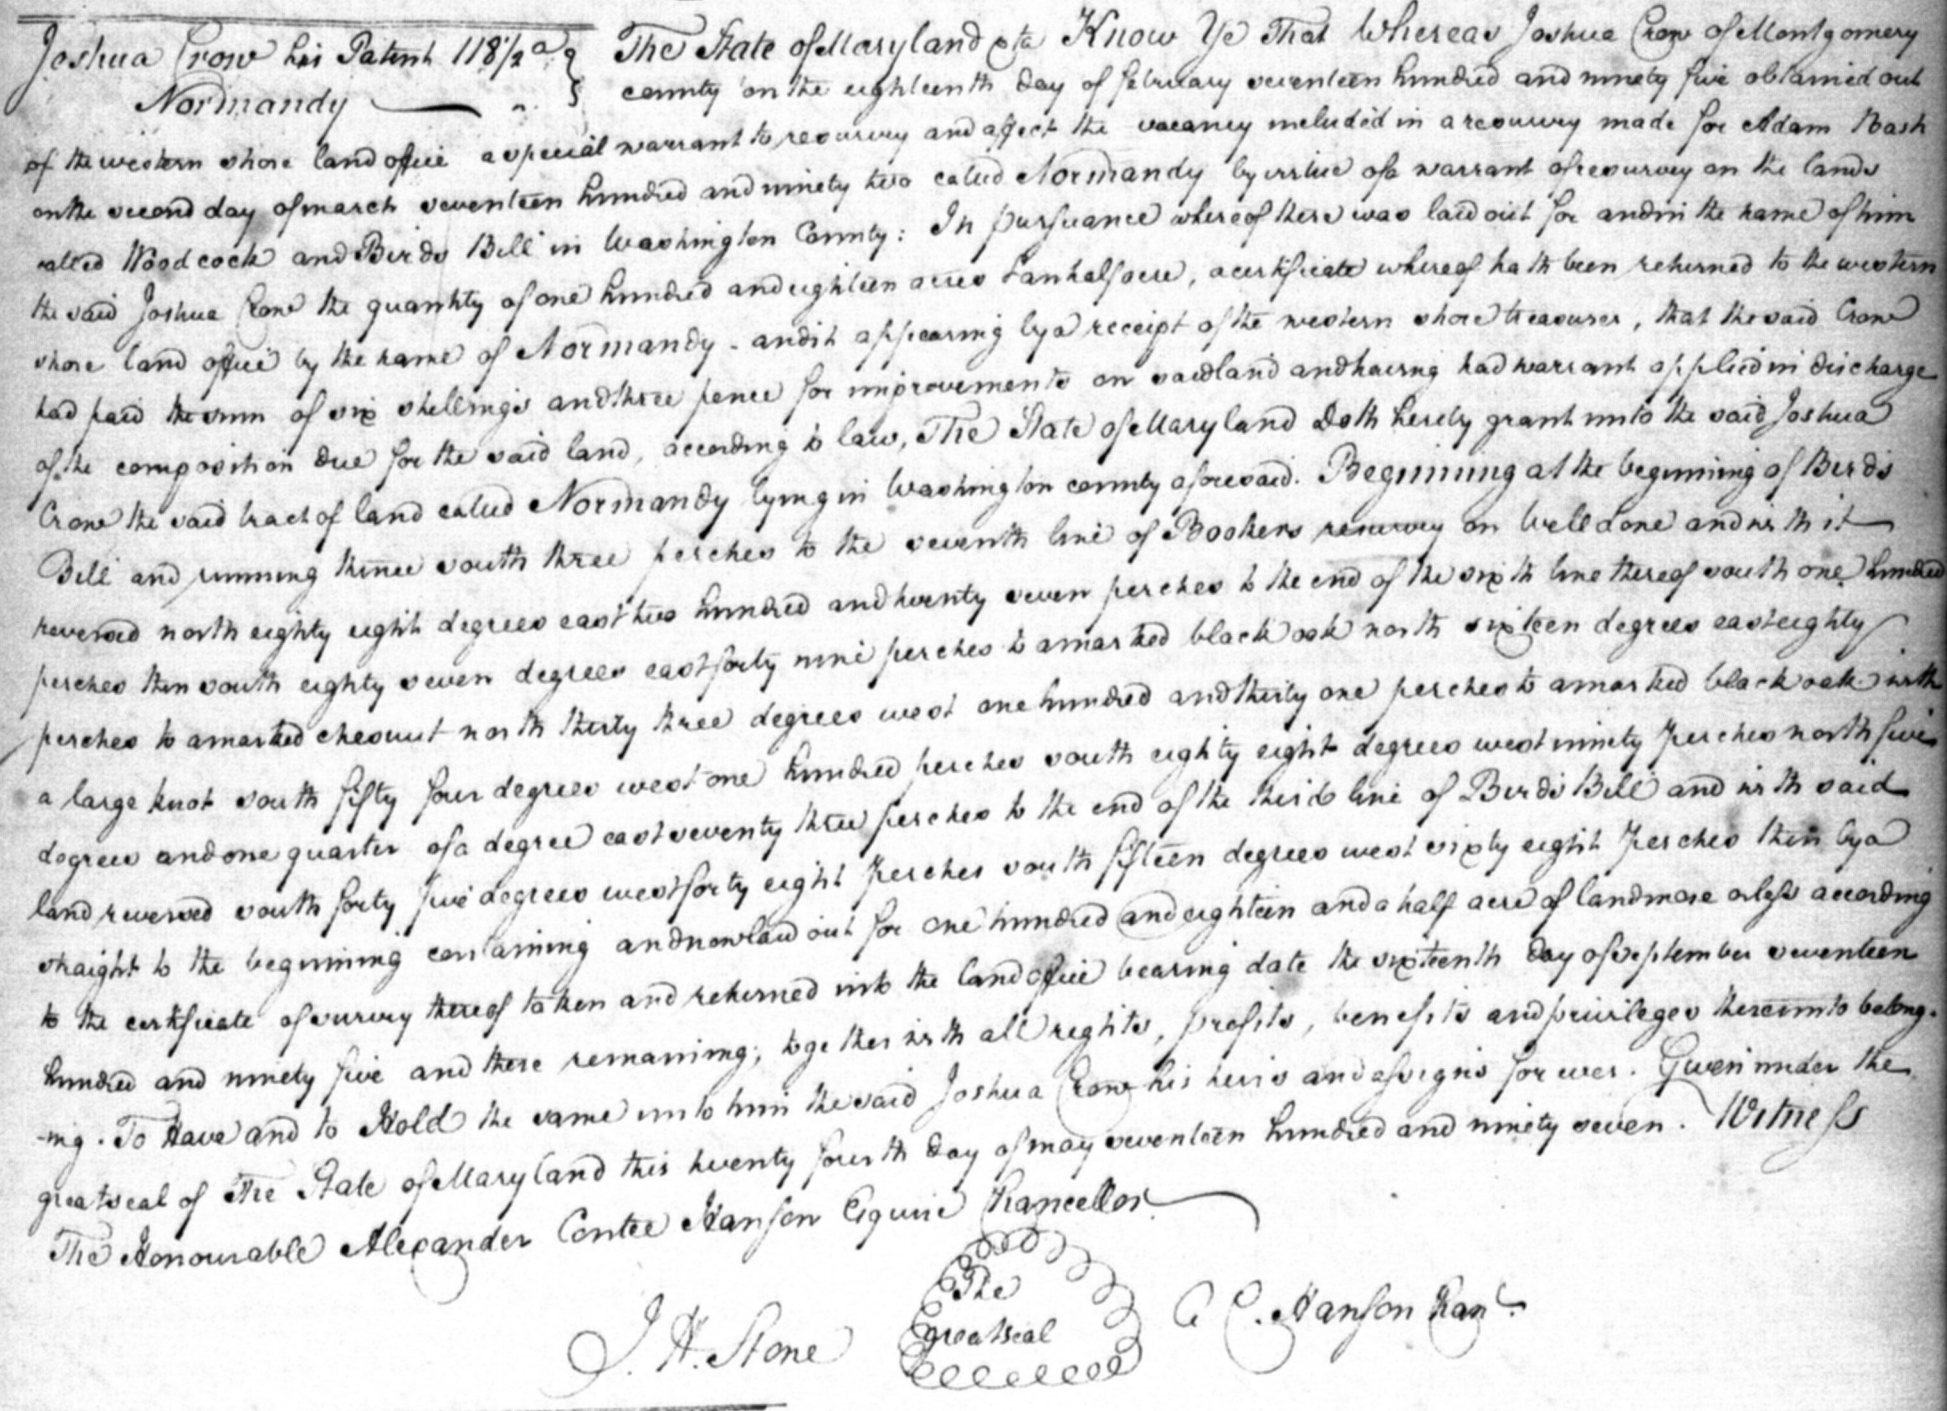 Joshua Crow his Patent 118 1/2 a
Normandy
The State of Maryland Know Ye That Whereas Joshua Crow of Montgomery
county on the eighteenth day of february seventeen hundred and ninety five obtained out
of the western shore land office a special warrant to resurvey and affect the vacancy included in a resurvey made for Adam Bash
on the second day of march seventeen hundred and ninety two called Normandy by virtue of a warrant of resurvey on the lands
called Woodcock and Birds Bill in Washington County: In pursuance whereof there was laid out for and in the name of him
the said Joshua Crow the quantity of one hundred and eighteen acres & an half acre, a certificate whereof hath been returned to the western
shore land office by the name of Normandy - and it appearing by a receipt of the western shore treasurer, that the said Crow
had paid the sum of six shillings and three pence for improvements on said land and having had warrant applied in discharge
of the composition due for the said land, according to law, The State of Maryland Doth hereby grant unto the said Joshua
Crow the said tract of land called Normandy lying in Washington county aforesaid. Beginning at the beginning of Birds
Bill and running thence south three perches to the seventh line of Bookers resurvey on Well done and with it
reversed north eighty eight degrees east two hundred and twenty seven perches to the end of the sixth line thereof south one hundred
perches then south eighty seven degrees east forty nine perches to a marked black oak north sixteen degrees east eighty
perches to a marked chesnut north thirty three degrees west one hundred and thirty one perches to a marked black oak with
a large knot south fifty four degrees west one hundred perches south eighty eight degrees west ninety perches north five
degrees and one quarter of a degree east seventy three perches to the end of the third line of Birds Bill and with said
land reversed south forty five degrees west forty eight perches south fifteen degrees west sixty eight perches then by a
straight to the beginning containing and now laid out for one hundred and eighteen and a half acre of land more or less according
to the certificate of survey thereof taken and returned into the land office bearing date the sixteenth day of september seventeen
hundred and ninety five and there remaining; together with all rights, profits, benefits and privileges thereunto belong-
-ing. To Have and to Hold the same unto him the said Joshua Crow his heirs and assigns for ever. Given under the
great seal of The State of Maryland this twenty fourth day of may seventeen hundred and ninety seven. Witness
The Honourable Alexander Contee Hanson Esquire Chancellor
J. H. Stone
The
great seal
A C. Hanson Kanr.